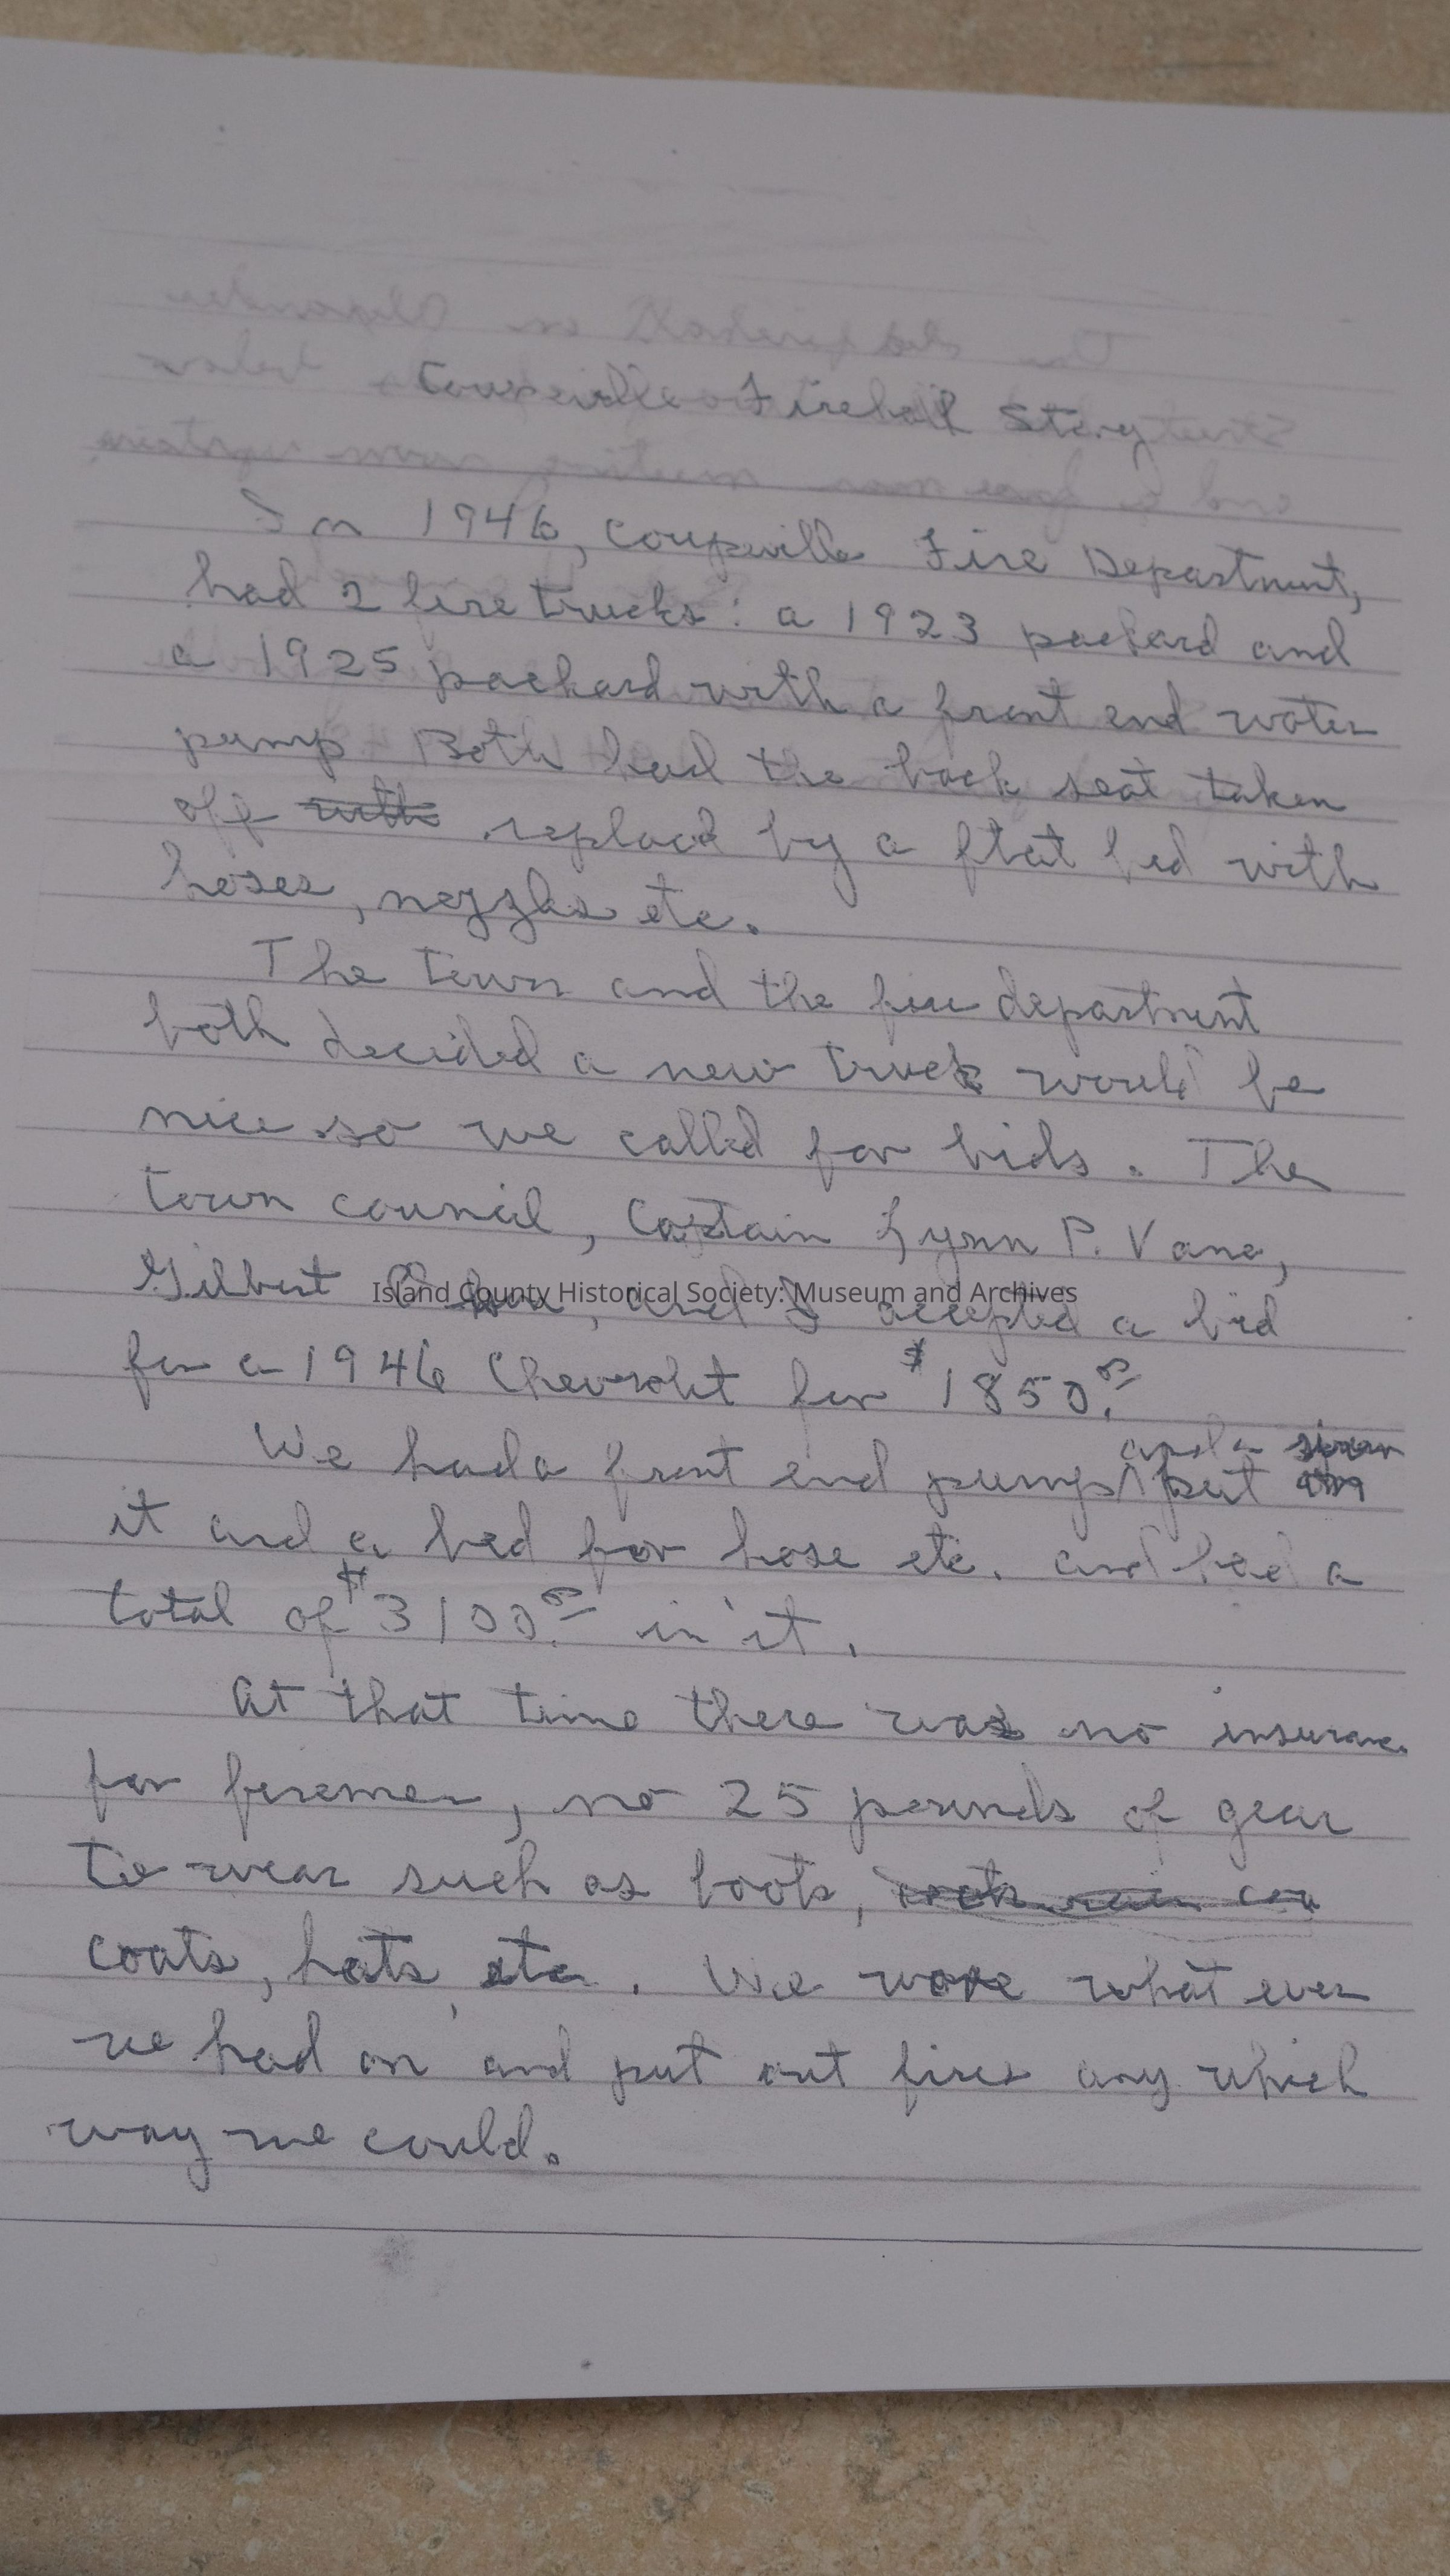 Coupeville Firehall Story
In 1946, Coupeville Fire Department,
had 2 fire trucks: a 1923 packard and
a 1925 packard with a front end water
pump Both had the back seat taken
off with replaced by a flat bed with
hoses, nozzles etc.
The town and the fire department
both decided a new truck would be
nice so we called for bids. The
town council, Captain Lynn P. Vane,
Gilbert and I accepted a bid
Island County Historical Society: Museum and Archives
for a 1946 Chevrolet for $1850.00
and a
We had a front end pump put on
it and a bed for hose etc. and had a
total of $3100.00 in it.
At that time there was no insurance
for firemen, no 25 pounds of gear
to wear such as boots,
coats, hats, etc. We wore what ever
we had on and put out fires any which
way we could.